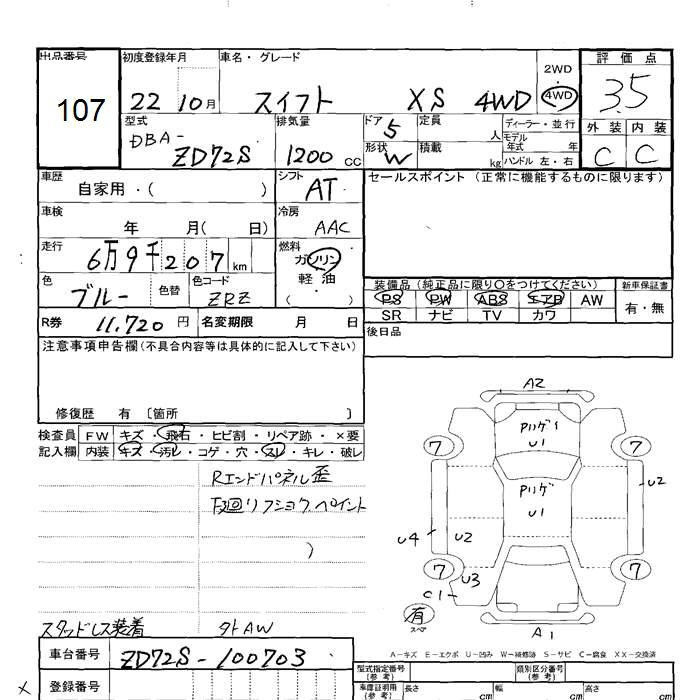 出品番号
107
初度登録年月
22 10月
車名・グレード
スイフト XS 4WD
2WD
・
4WD
評価点
3.5
外装 内装
C C
型式
DBA-
ZD72S
排気量
1200 CC
ドア 5
形状 W
定員 人
積載 kg
ディーラー・並行
モデル年式 年
ハンドル 左・右
車歴
自家用・( )
シフト
AT
セールスポイント (正常に機能するものに限ります)
車検
年 月( 日)
冷房
AAC
走行
6万9千207km
燃料
ガソリン
軽・油
( ・ )
色
ブルー
色替
色コード
ZRZ
装備品 (純正品に限り○をつけてください)
PS PW ABS エアB AW
SR ナビ TV カワ
新車保証書
有・無
R券 11,720円
名変期限 月 日
後日品
注意事項申告欄(不具合内容等は具体的に記入して下さい)
修復歴 有 〔箇所 〕
検査員
記入欄
FW キズ・飛石・ヒビ割・リペア跡・×要
内装 キズ・汚レ・コゲ・穴・スレ・キレ・破レ
Rエンドパネル歪
下廻リフショク、ペイント
スタッドレス装着 外AW
車台番号 ZD72S-100703
登録番号
A2
U1
U1
7
7
7
7
U2
U4
U2
U3
C1
A1
有
スペ
A-キズ E-エクボ U-凹み W-補修跡 S-サビ C-腐食 XX-交換済
型式指定番号
(参考)
類別区分番号
(参考)
車庫証明用
(参考)
長さ cm
幅 cm
高さ cm